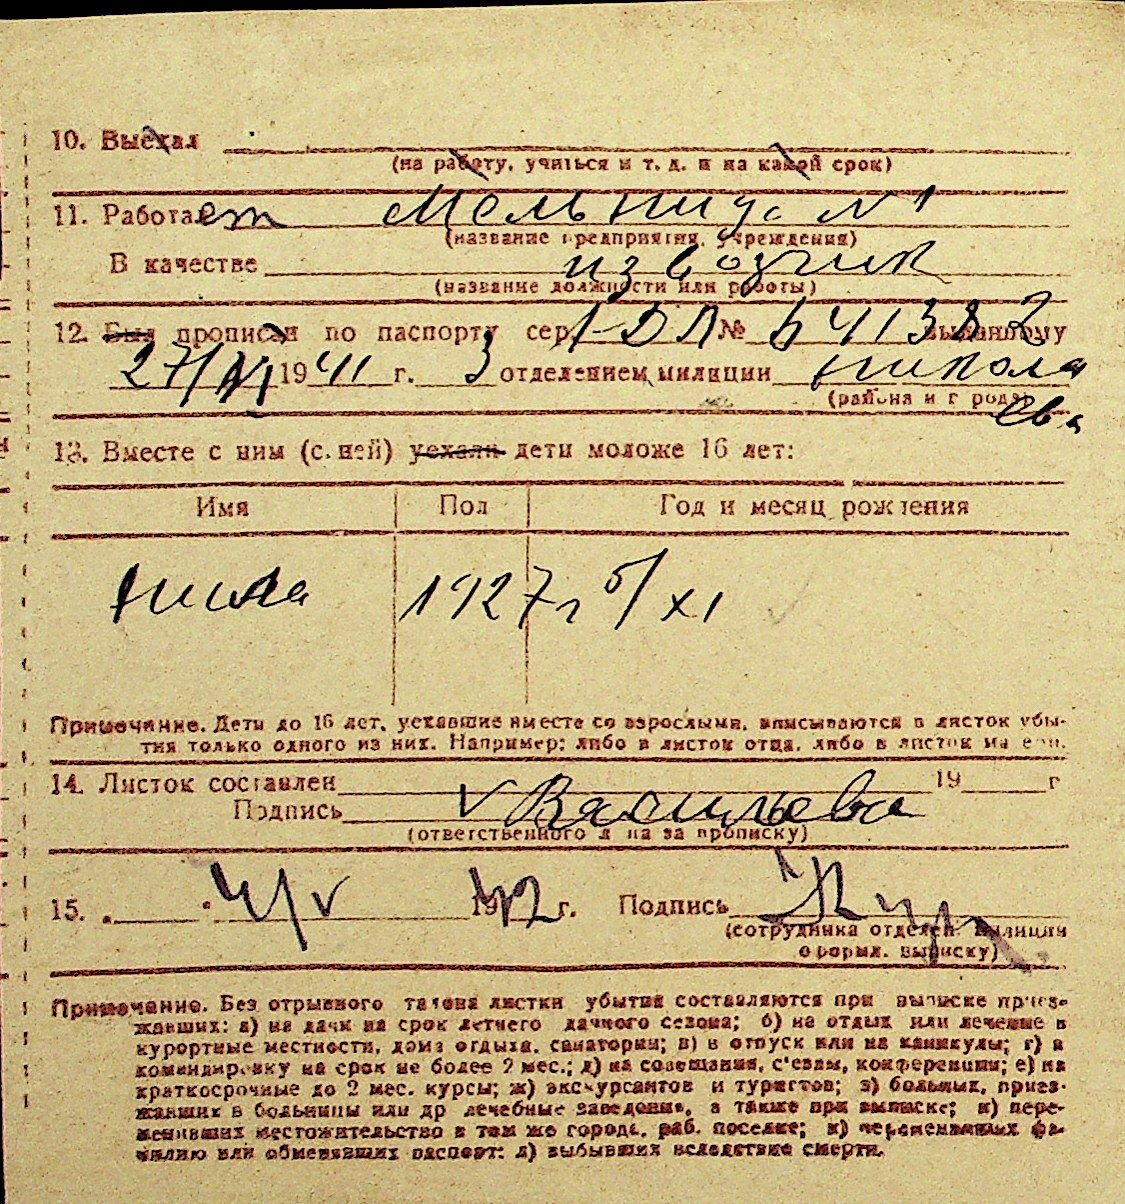 10. Выехал
(на работу, учиться и т. д. и на какой срок)
11. Работает Мельница №1
(название предприятия, учреждения)
В качестве извозчик
(название должности или работы)
12. Был прописан по паспорту сер. 1-ДЛ № 641382 выданному
27/XI 1941 г. 3 отделением милиции Никола
(района и города)
ева
13. Вместе с ним (с ней) уехали дети моложе 16 лет:
Имя Пол Год и месяц рождения
Нина 1927 г 5/XI
Примечание. Дети до 16 лет, уехавшие вместе со взрослыми, вписываются в листок убы-
тия только одного из них. Например: либо в листок отца, либо в листок матери.
14. Листок составлен 19 г
Подпись V Васильева
(ответственного лица за прописку)
15. " " 4/V 1942 г. Подпись
(сотрудника отделен. милиции
оформл. выписку)
Примечание. Без отрывного талона листки убытия составляются при выписке приез-
жавших: а) на дачи на срок летнего дачного сезона; б) на отдых или лечение в
курортные местности, дома отдыха, санатории; в) в отпуск или на каникулы; г) в
командировку на срок не более 2 мес.; д) на совещания, с'езды, конференции; е) на
краткосрочные до 2 мес. курсы; ж) экскурсантов и туристов; з) больных, приез-
жавших в больницы или др лечебные заведения, а также при выписке; и) пере-
менивших местожительство в том же городе, раб. поселке; к) переменивших фа-
милию или обменявших паспорт; л) выбывших вследствие смерти.